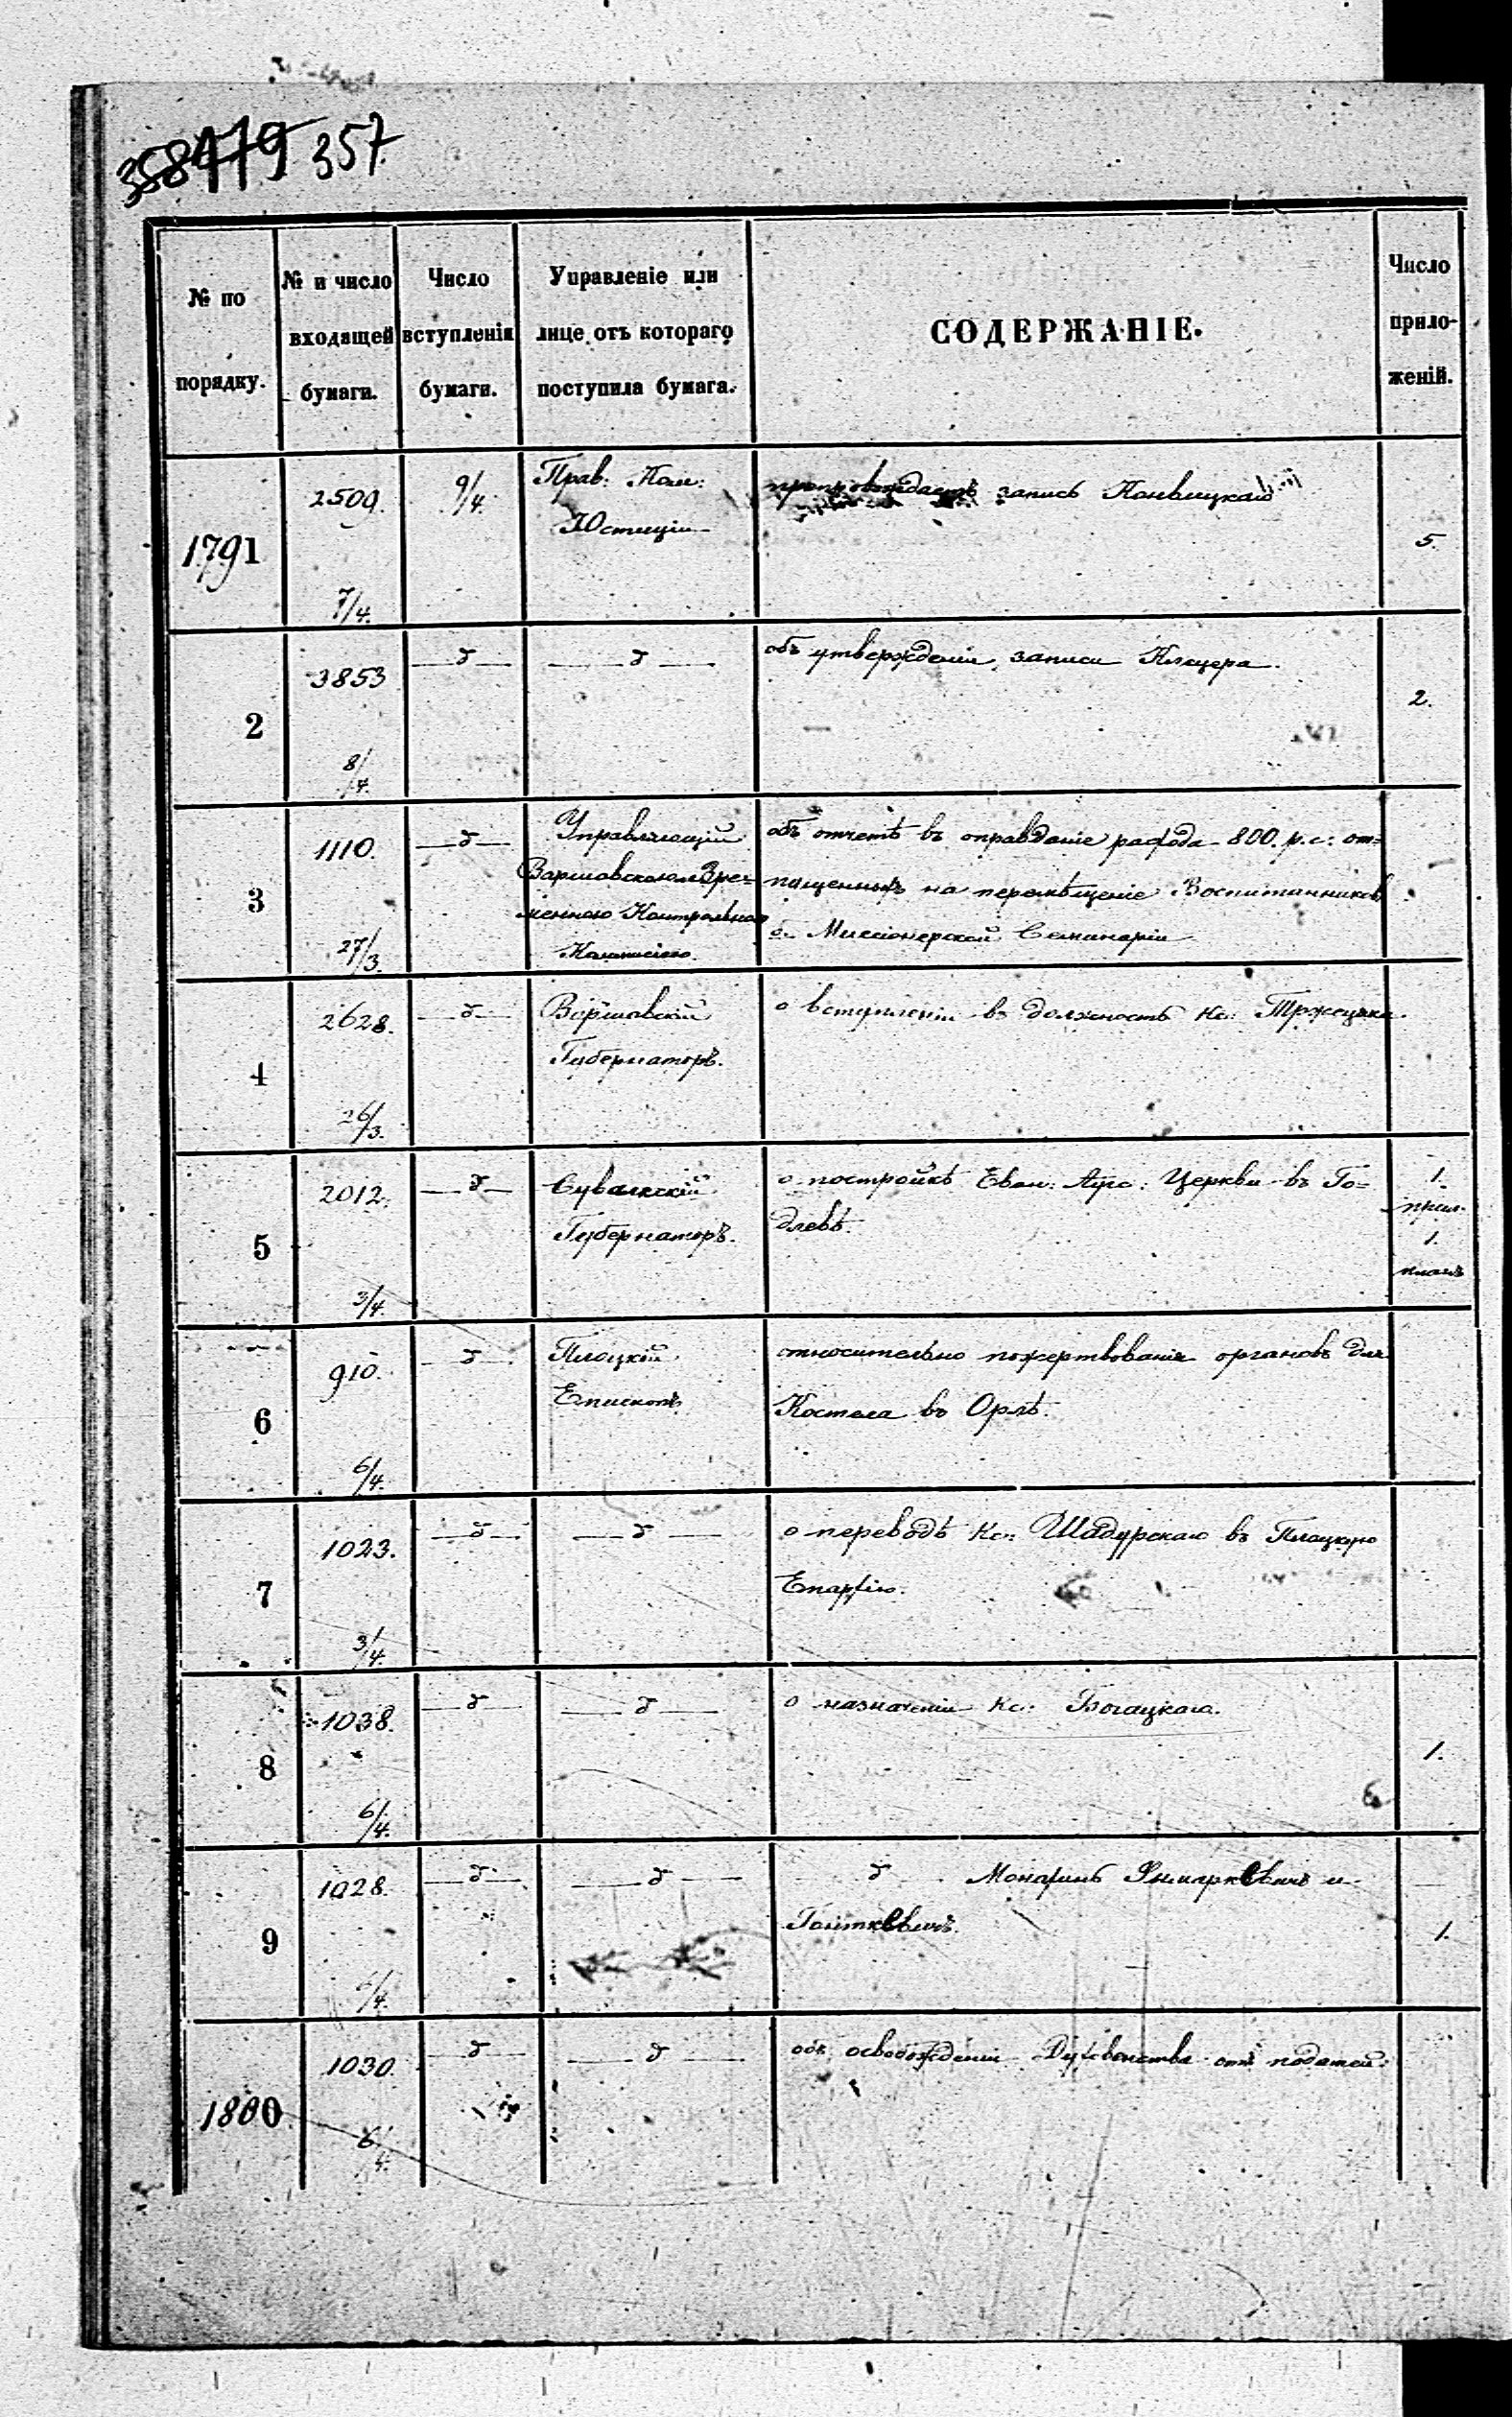 357
№ по порядку.
№ и число входящей бумаги.
Число вступленія бумаги.
Управленіе или лице отъ котораго поступила бумага.
СОДЕРЖАНІЕ.
Число приложеній.
1791
2509.
7/4.
9/4.
Прав: Ком:
Юстиціи
препровождаетъ запись
5.
2
3853
8/4.
объ утвержденіи записи Плацера.
2.
3
1110.
27/3.
Управляющій
Варшавскою Вре=
менною Контрольною
Коммисіею.
объ отчетѣ въ оправданіе расхода 800. р. с: от=
пущенныхъ на перемѣщеніе Воспитанниковъ
б. Миссіонерской Семинаріи
4
2628.
26/3.
Варшавскій
Губернаторъ.
о вступленіи въ должность Кс:
5
2012.
3/4.
Сувалкскій
Губернаторъ.
о постройкѣ Еван: Аугс: Церкви въ Го=
длевѣ.
1.
прил.
1.
планъ
6
910.
6/4.
Плоцкій
Епископъ
относительно пожертвованія органовъ для
Костела въ Орлѣ.
7
1023.
3/4.
о переводѣ Кс: Шадурскаго въ Плоцкую
Епархію.
8
1038.
6/4.
о назначеніи Кс: Богацкаго.
1.
9
1028.
6/4.
Монахинь
1.
1800
1030.
6/4.
объ освобожденіи Духовенства отъ податей.